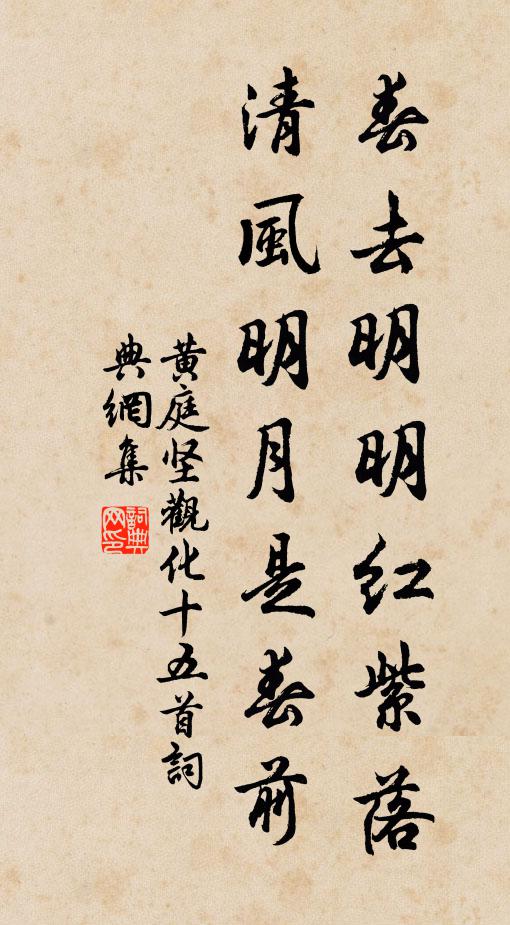 春去明明紅紫落
清風明月是春前
黄庭坚觀化十五首詞
典網集
詞典
网印